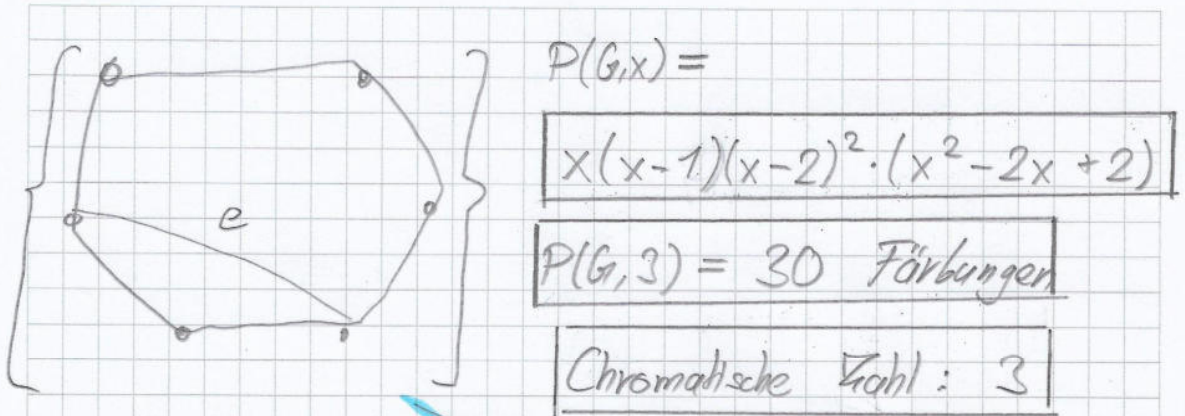 P(G,x) =
x(x-1)(x-2)²·(x²-2x+2)
e
P(G,3) = 30 Färbungen
Chromatische Zahl: 3